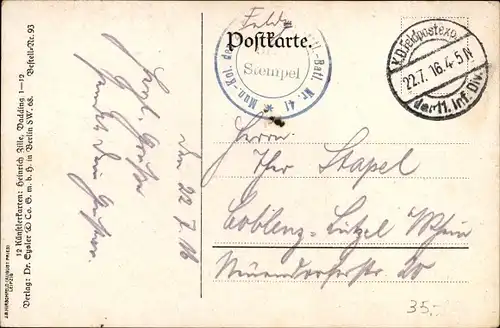 12 Künstlerkarten: Heinrich Zille, Vadding 1—12 Bestell-Nr. 93
Verlag: Dr. Eysler & Co. G. m. b. H. in Berlin SW. 68.
Feld
Postkarte.
Stempel
Mun.-Kol. Batl. Nr. 4
K.D. Feldpostexp.
22.7.16. 4-5 N
der 11. Inf. Div.
den 22.7.16
Herzl. Grüße
sendet Dein
Herrn
Stapel
Coblenz-Lützel Rhein
Neuendorferstr 20
35.-